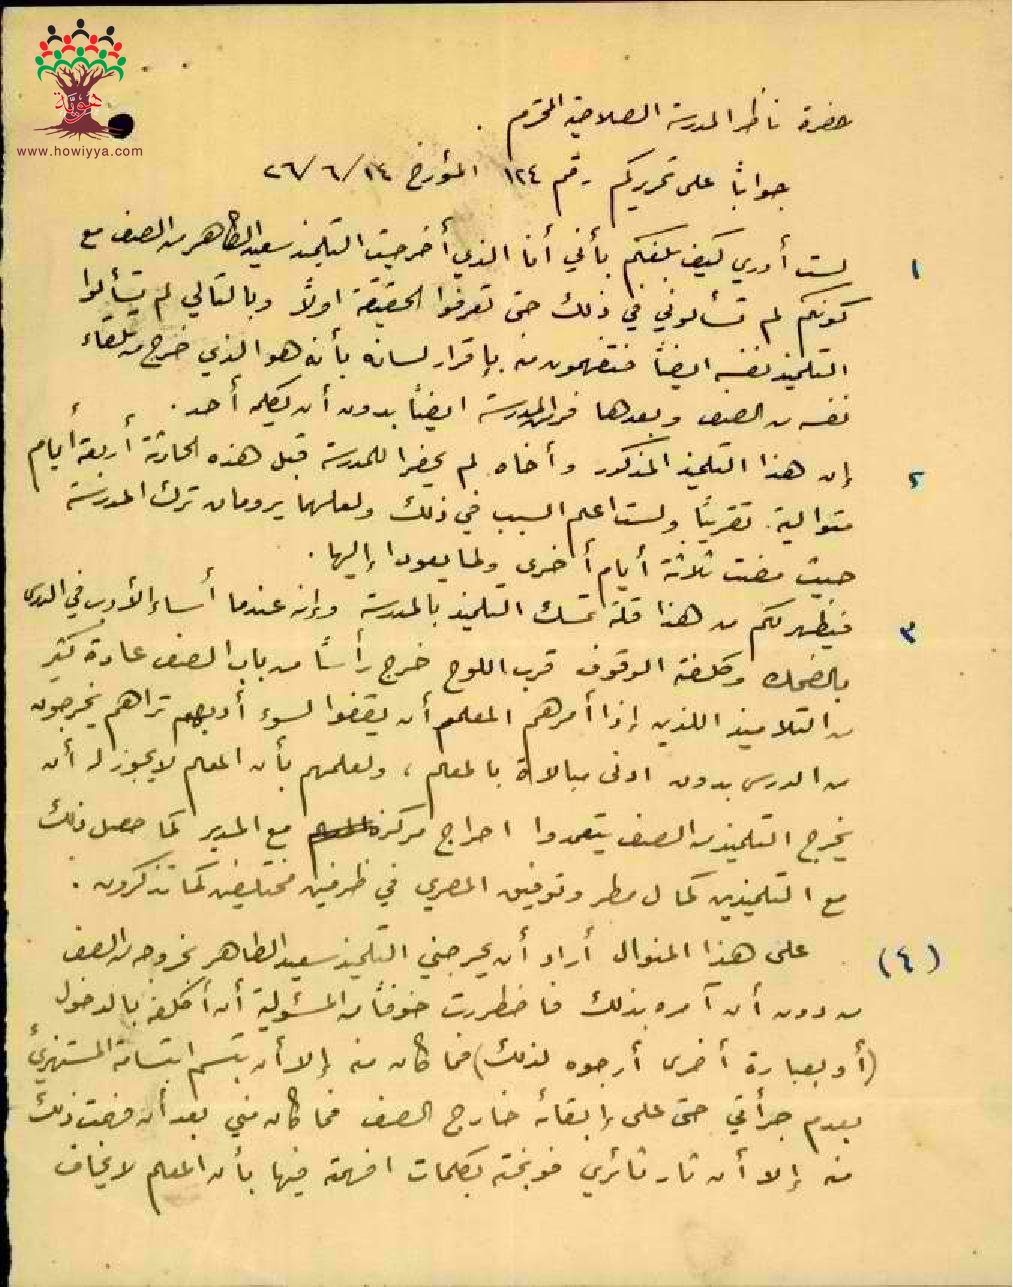 هويّة
www.howiyya.com
حضرة ناظر المدرسة الصلاحية المحترم .
جواباً على تحريركم رقم ١٢٤ المؤرخ ١٤/٦/٢٦
١ لست أدري كيف بلغكم بأني أنا الذي أخرجت التلميذ سعيد الطاهر من الصف مع
كونكم لم تسألوني في ذلك حتى تعرفوا الحقيقة اولاً وبالتالي لم تسألوا
التلميذ نفسه ايضاً فتفهمون منه بإقرار لسانه بأنه هو الذي خرج من تلقاء
نفسه من الصف وبعدها من المدرسة ايضاً بدون أن يكلمه أحد .
٢ إن هذا التلميذ المذكور وأخاه لم يحضرا للمدرسة قبل هذه الحادثة أربعة أيام
متوالية تقريباً ولست اعلم السبب في ذلك ولعلهما يرومان ترك المدرسة
حيث مضت ثلاثة أيام أخرى ولما يعودا إليها .
٣ فيظهر لكم من هذا قلة تمسك التلميذ بالمدرسة وإنه عندما أساء الأدب في الدرس
بالضحك وكلفته الوقوف قرب اللوح خرج رأساً من باب الصف عادة كثير
من التلاميذ اللذين إذا أمرهم المعلم أن يقفوا لسوء أدبهم تراهم يخرجون
من الدرس بدون ادنى مبالاة بالمعلم ، ولعلمهم بأن المعلم لا يجوز له أن
يخرج التلميذ من الصف يتعمدوا احراج مركزه مع المدير كما حصل ذلك
مع التلميذين كمال مطر وتوفيق المصري في ظرفين مختلفين كما تذكرون .
(٤) على هذا المنوال أراد أن يحرجني التلميذ سعيد الطاهر بخروجه من الصف
من دون أن آمره بذلك فاضطررت خوفاً من المسئولية أن أكلفه بالدخول
(أو بعبارة أخرى أرجوه لذلك) فما كان منه إلا أن يتسم ابتسامة المستهزئ
بعدم جرأتي حتى على إبقائه خارج الصف فما كان مني بعد أن فهمت ذلك
منه إلا أن ثار ثائري فوبخته بكلمات افهمته فيها بأن المعلم لا يخاف